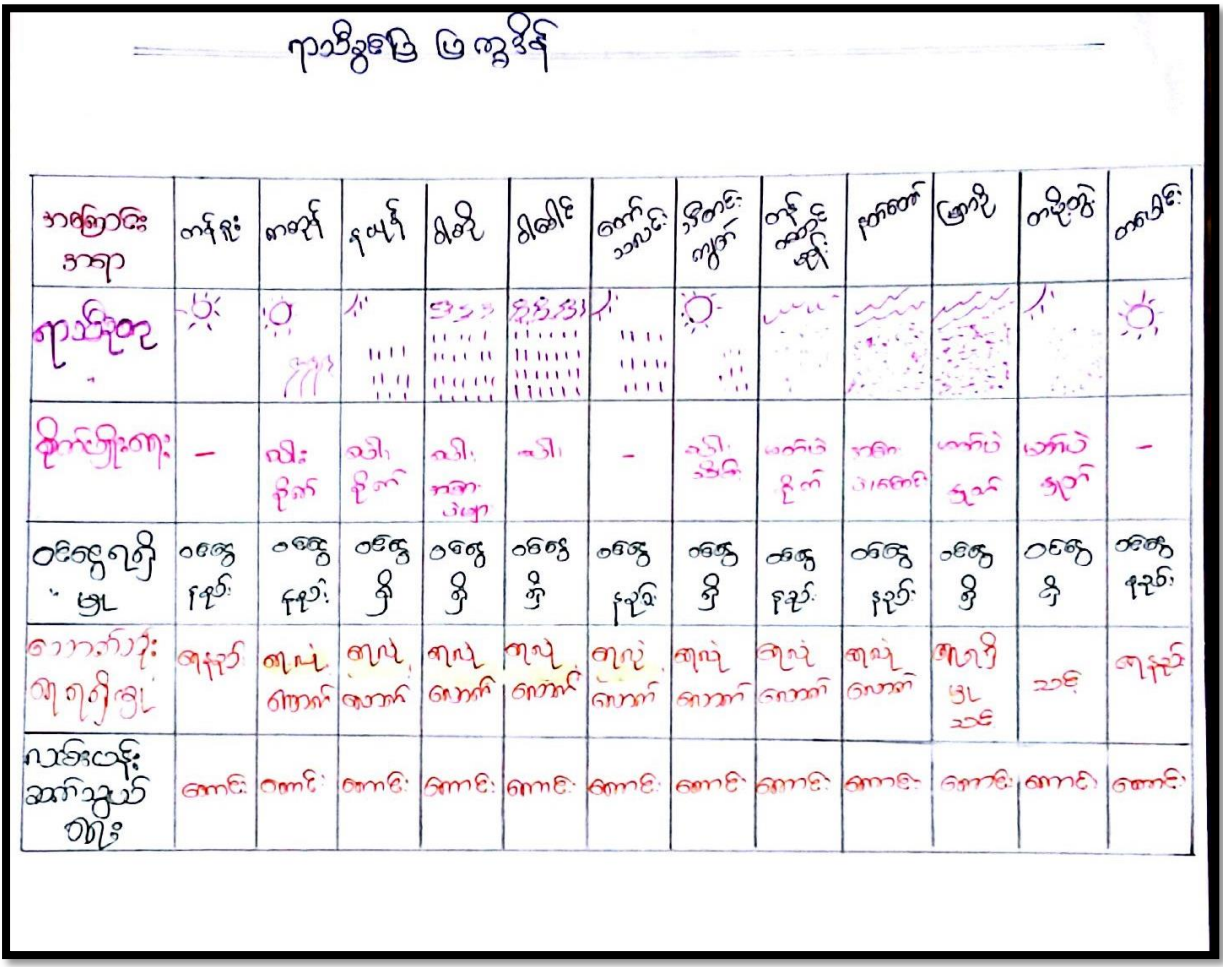 ရာသီခွင်ပြ ပြက္ခဒိန်
အကြောင်း
အရာ
တန်ခူး
ကဆုန်
နယုန်
ဝါဆို
ဝါခေါင်
တော်
သလင်း
သီတင်း
ကျွတ်
တန်
ဆောင်
မုန်း
နတ်တော်
ပြာသို
တပို့တွဲ
တပေါင်း
ရာသီဥတု
စိုက်ပျိုးရေး
-
စိုက်
စိုက်
-
မတ်ပဲ
စိုက်
မတ်ပဲ
နှုတ်
မတ်ပဲ
နှုတ်
-
ဝင်ငွေရရှိ
မှု
ဝင်ငွေ
နည်း
ဝင်ငွေ
နည်း
ဝင်ငွေ
ရှိ
ဝင်ငွေ
ရှိ
ဝင်ငွေ
ရှိ
ဝင်ငွေ
နည်း
ဝင်ငွေ
ရှိ
ဝင်ငွေ
နည်း
ဝင်ငွေ
နည်း
ဝင်ငွေ
ရှိ
ဝင်ငွေ
ရှိ
ဝင်ငွေ
နည်း
သောက်သုံး
ရေရရှိမှု
ရေနည်း
ရေလုံ
လောက်
ရေလုံ
လောက်
ရေလုံ
လောက်
ရေလုံ
လောက်
ရေလုံ
လောက်
ရေလုံ
လောက်
ရေလုံ
လောက်
ရေလုံ
လောက်
ရေရရှိ
မှု
သင့်
သင့်
ရေနည်း
လမ်းပန်း
ဆက်သွယ်
ရေး
ကောင်း
ကောင်း
ကောင်း
ကောင်း
ကောင်း
ကောင်း
ကောင်း
ကောင်း
ကောင်း
ကောင်း
ကောင်း
ကောင်း